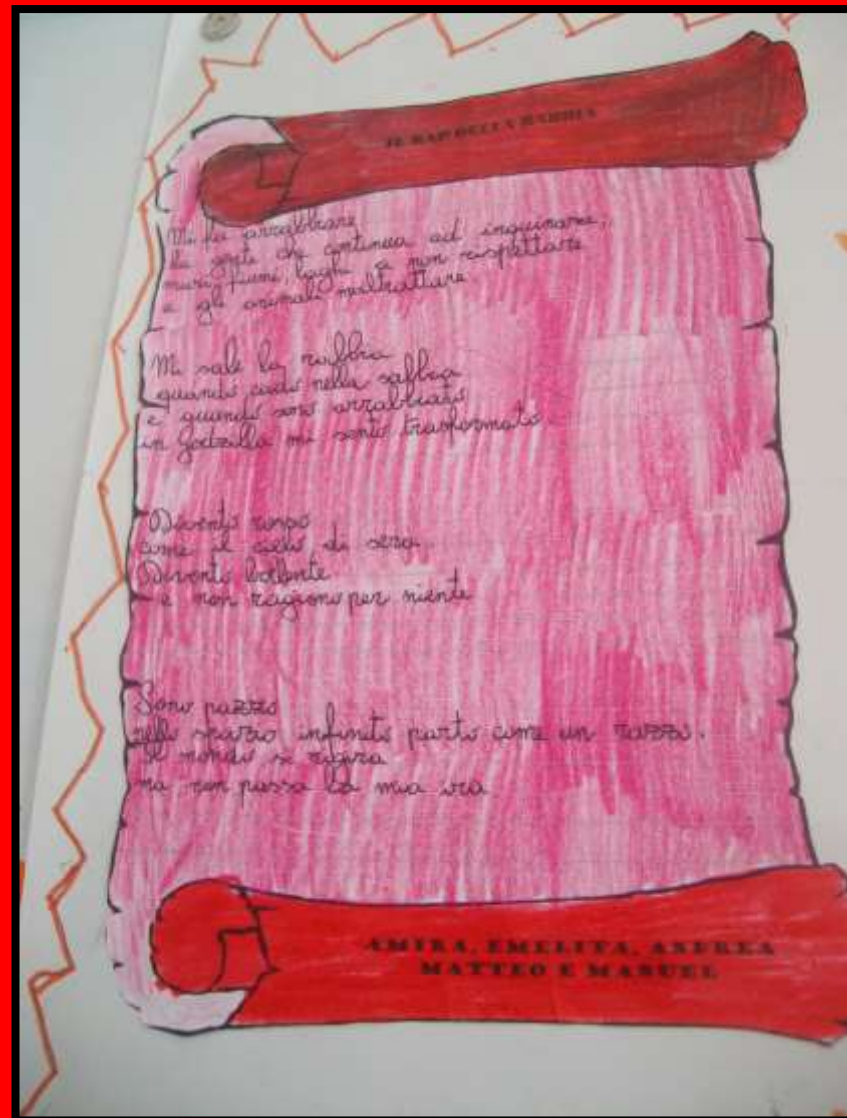 IL RAP DELLA RABBIA
Mi fa arrabbiare
la gente che continua ad inquinare,
mari, fiumi, laghi a non rispettare
e gli animali maltrattare.
Mi sale la rabbia
quando cado nella sabbia
e quando sono arrabbiato
in Godzilla mi sento trasformato.
Divento rosso
come il cielo di sera.
Divento bollente
e non ragiono per niente
Sono pazzo
nello spazio infinito parto come un razzo.
Il mondo si rigira
ma non passa la mia ira
AMIRA, EMELITA, ANDREA
MATTEO E MANUEL